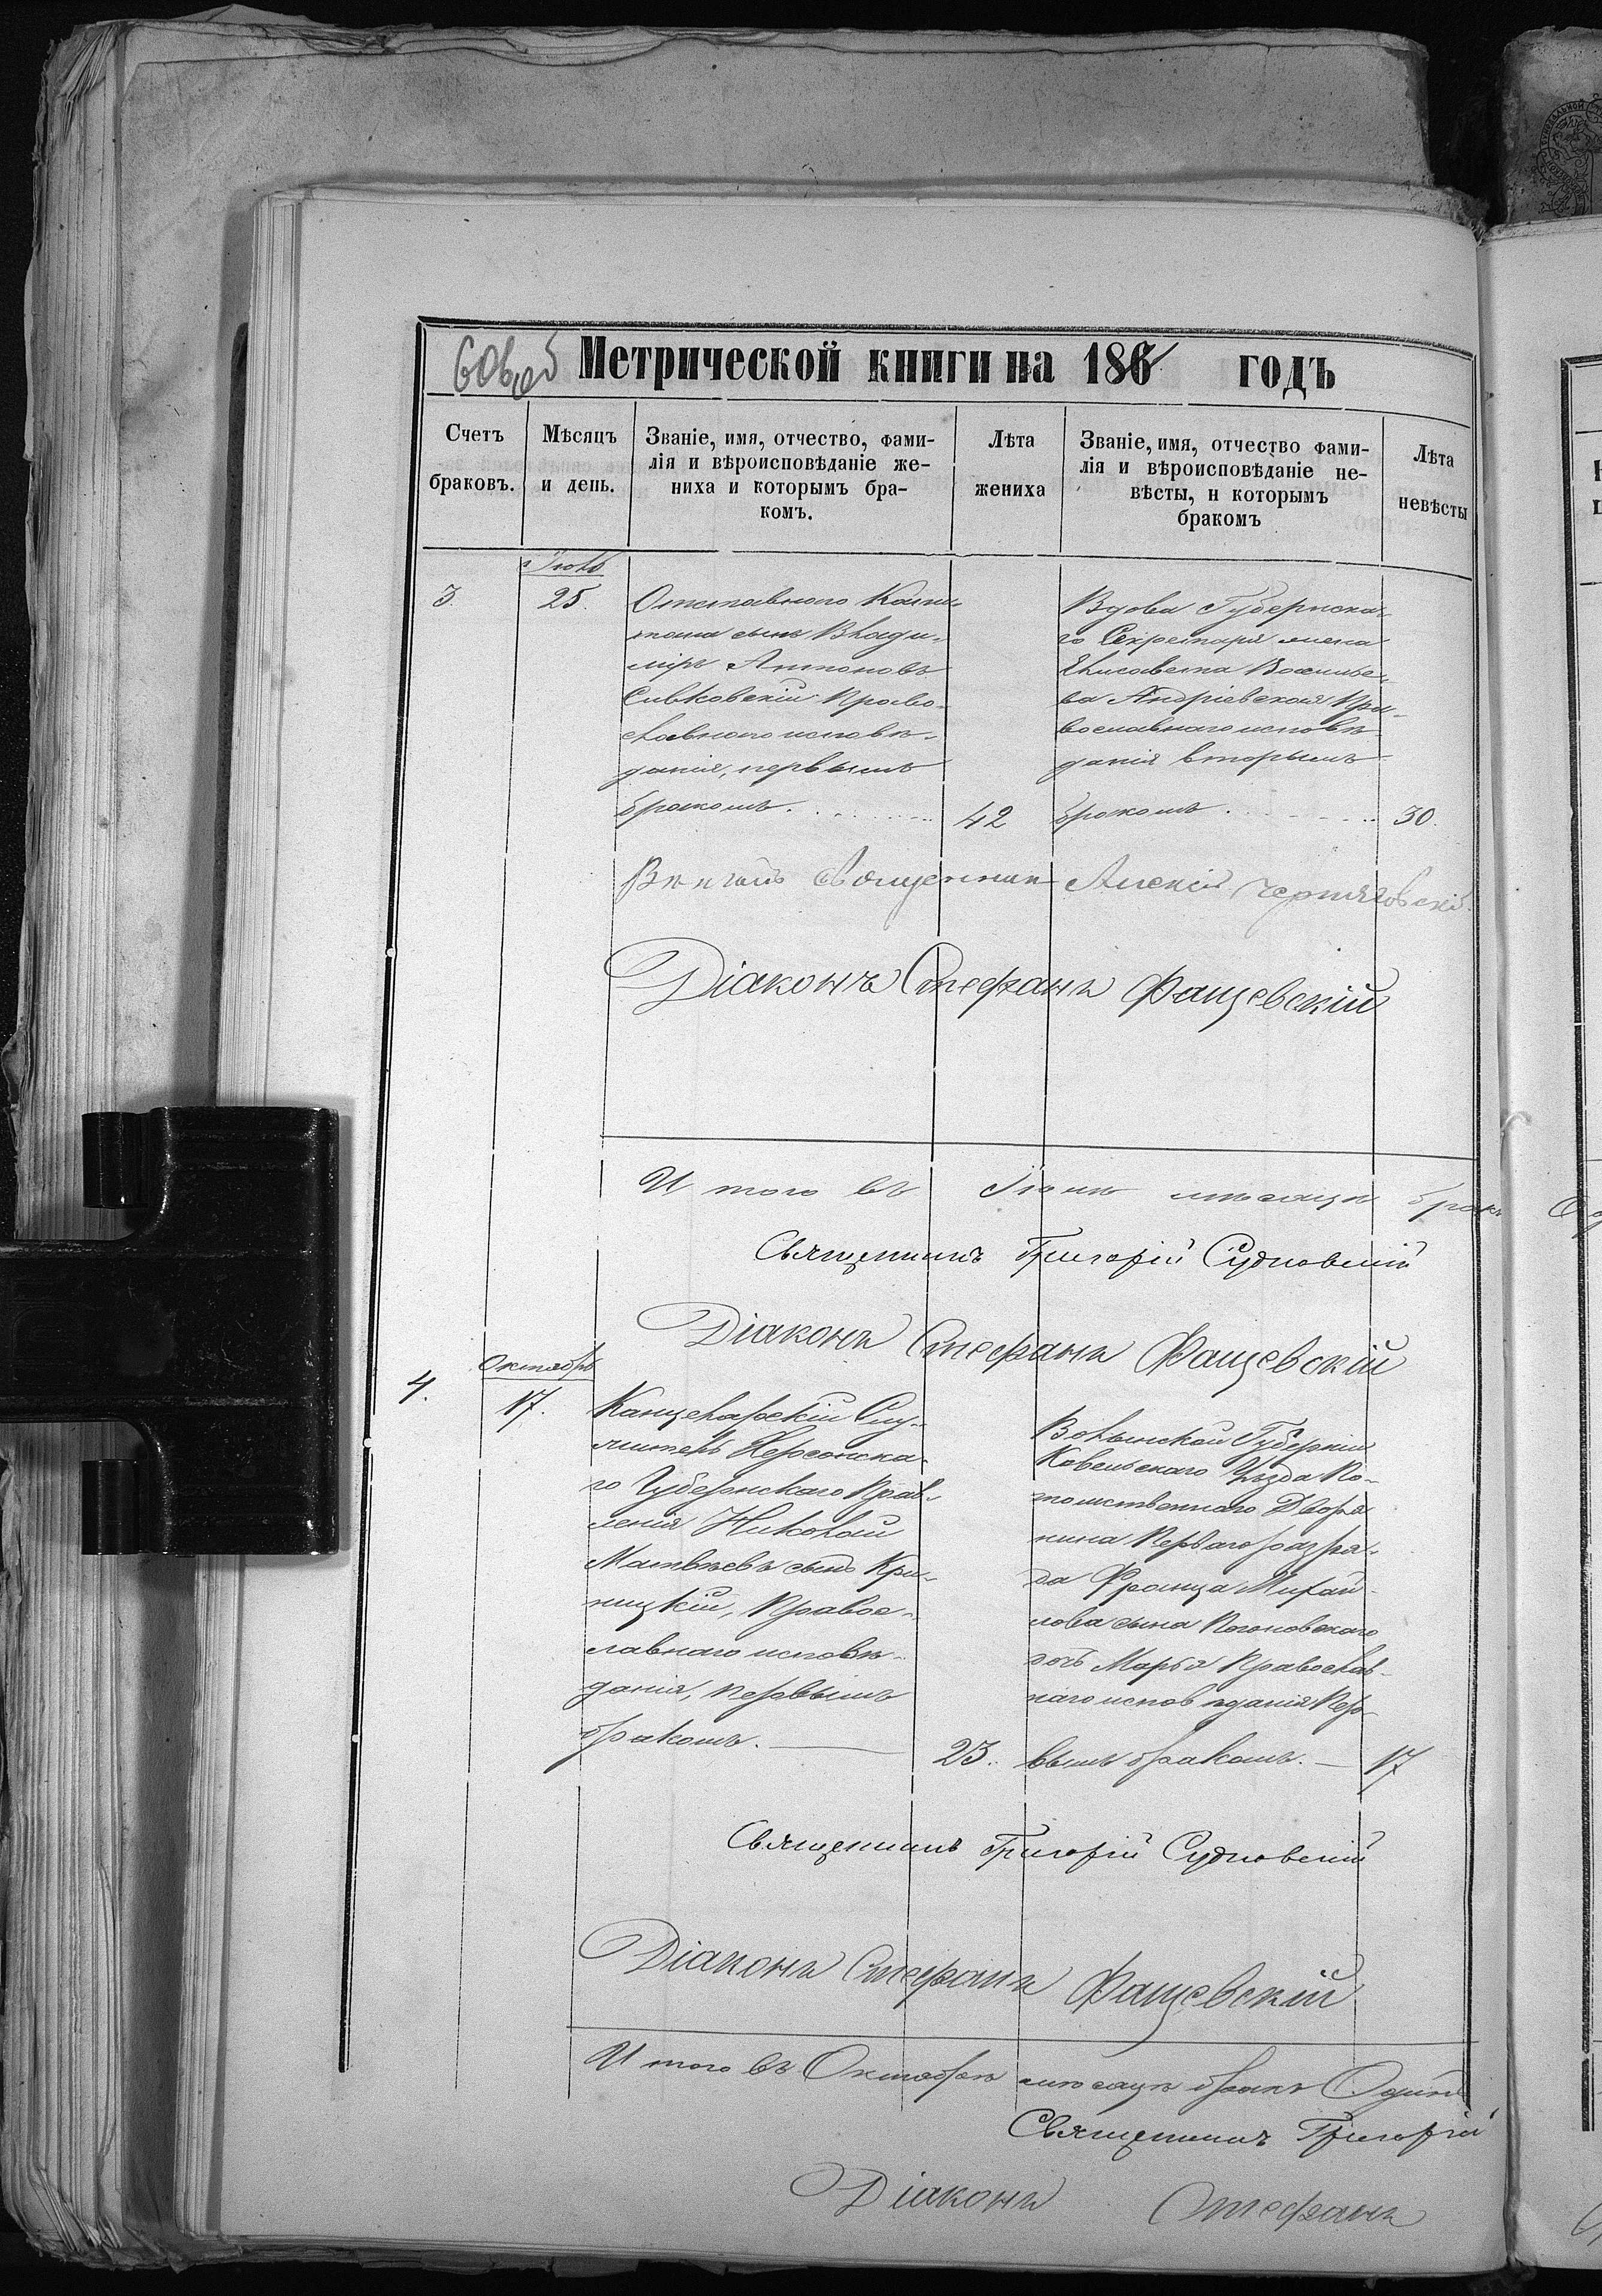 Метрической книги на 186 годъ
Счетъ браковъ.
Мѣсяцъ и день.
Званіе, имя, отчество, фами-
лія и вѣроисповѣданіе же-
ниха и которымъ бра-
комъ.
Лѣта жениха
Званіе, имя, отчество фами-
лія и вѣроисповѣданіе не-
вѣсты, и которымъ
бракомъ
Лѣта невѣсты
3.
25.
Отставного Капи-
тана сынъ Влади-
міръ Антоновъ
Сивковскій Право-
славного исповѣ-
данія, первымъ
бракомъ.
42
Вдова Губернска-
го Секретаря жена
Елисавета Василье-
ва Андріевская Пра-
вославнаго исповѣ-
данія вторымъ
бракомъ.
30.
Вѣнчалъ Священник Алексій
Діаконъ Стефанъ Фащевскій
И того въ Іюнѣ мѣсяцѣ бракъ
Священникъ Григорій Судковскій
Діаконъ Стефанъ Фащевскій
4.
Октябрь
17.
Канцелярскій Слу-
житель Херсонска-
го Губернскаго Прав-
ленія Николай
Матвѣевъ сынъ Кри-
ницкій, Правос-
лавнаго исповѣ-
данія, первымъ
бракомъ.
23.
Волынской Губерніи
Ковельскаго Уѣзда По-
томственнаго Дворя
нина Перваго разря-
да Франца Михай-
лова сына Погоновскаго
дочь Марья Православ-
наго исповѣданія Пер-
вымъ бракомъ.
17
Священникъ Григорій Судковскій
Діаконъ Стефанъ Фащевскій
И того въ Октябрѣ мѣсяцѣ бракъ Одинъ
Священникъ Григорій
Діаконъ Стефанъ